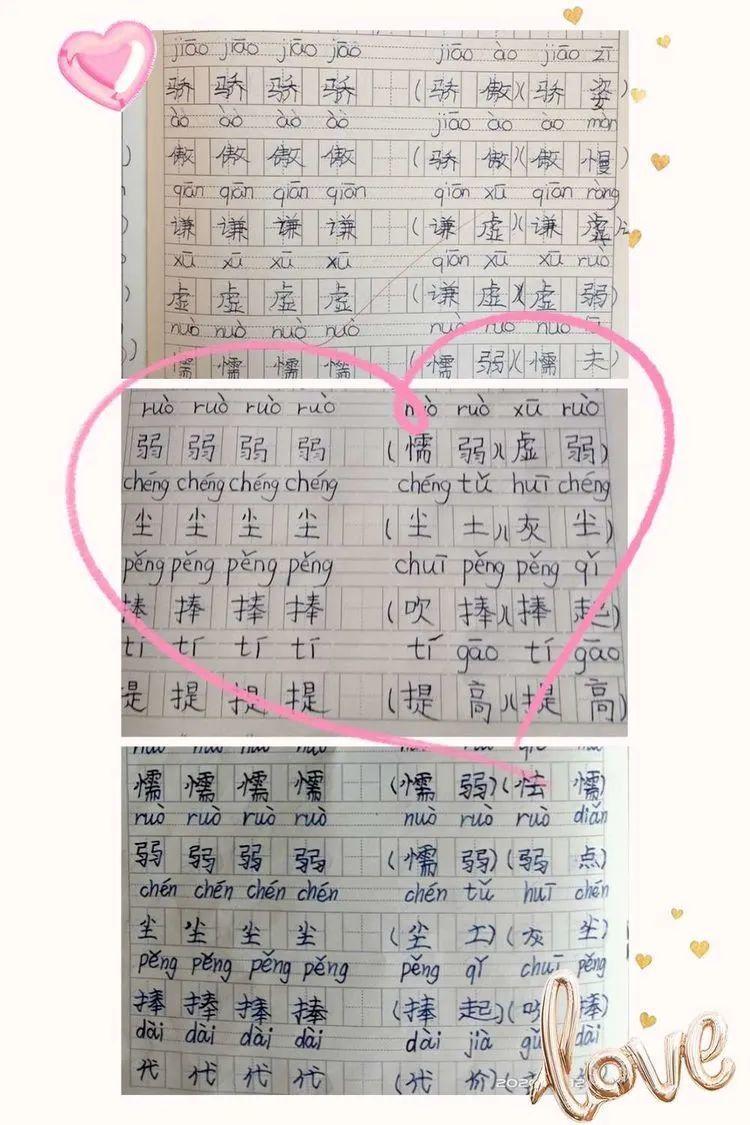 jiāo jiāo jiāo jiāo jiāo ào jiāo zī
骄 骄 骄 骄 (骄 傲)(骄 姿)
ào ào ào ào jiāo ào ào màn
傲 傲 傲 傲 (骄 傲)(傲 慢)
qiān qiān qiān qiān qiān xū qiān ràng
谦 谦 谦 谦 (谦 虚)(谦
xū xū xū xū qiān xū xū ruò
虚 虚 虚 虚 (谦 虚)(虚 弱)
nuò nuò nuò nuò nuò ruò nuò
懦 懦 懦 懦 (懦 弱)(懦 夫)
ruò ruò ruò ruò ruò xū ruò
弱 弱 弱 弱 (懦 弱)(虚 弱)
chéng chéng chéng chéng chéng tǔ huī chéng
尘 尘 尘 尘 (尘 土)(灰 尘)
pěng pěng pěng pěng chuī pěng pěng qǐ
捧 捧 捧 捧 (吹 捧)(捧 起)
tí tí tí tí tí gāo tí gāo
提 提 提 提 (提 高)(提 高)
懦 懦 懦 懦 (懦 弱)(怯 懦)
ruò ruò ruò ruò nuò ruò ruò diǎn
弱 弱 弱 弱 (懦 弱)(弱 点)
chén chén chén chén chén tǔ huī chén
尘 尘 尘 尘 (尘 土)(灰 尘)
pěng pěng pěng pěng pěng qǐ chuī pěng
捧 捧 捧 捧 (捧 起)(吹 捧)
dài dài dài dài dài jià dài
代 代 代 代 (代 价)(
love